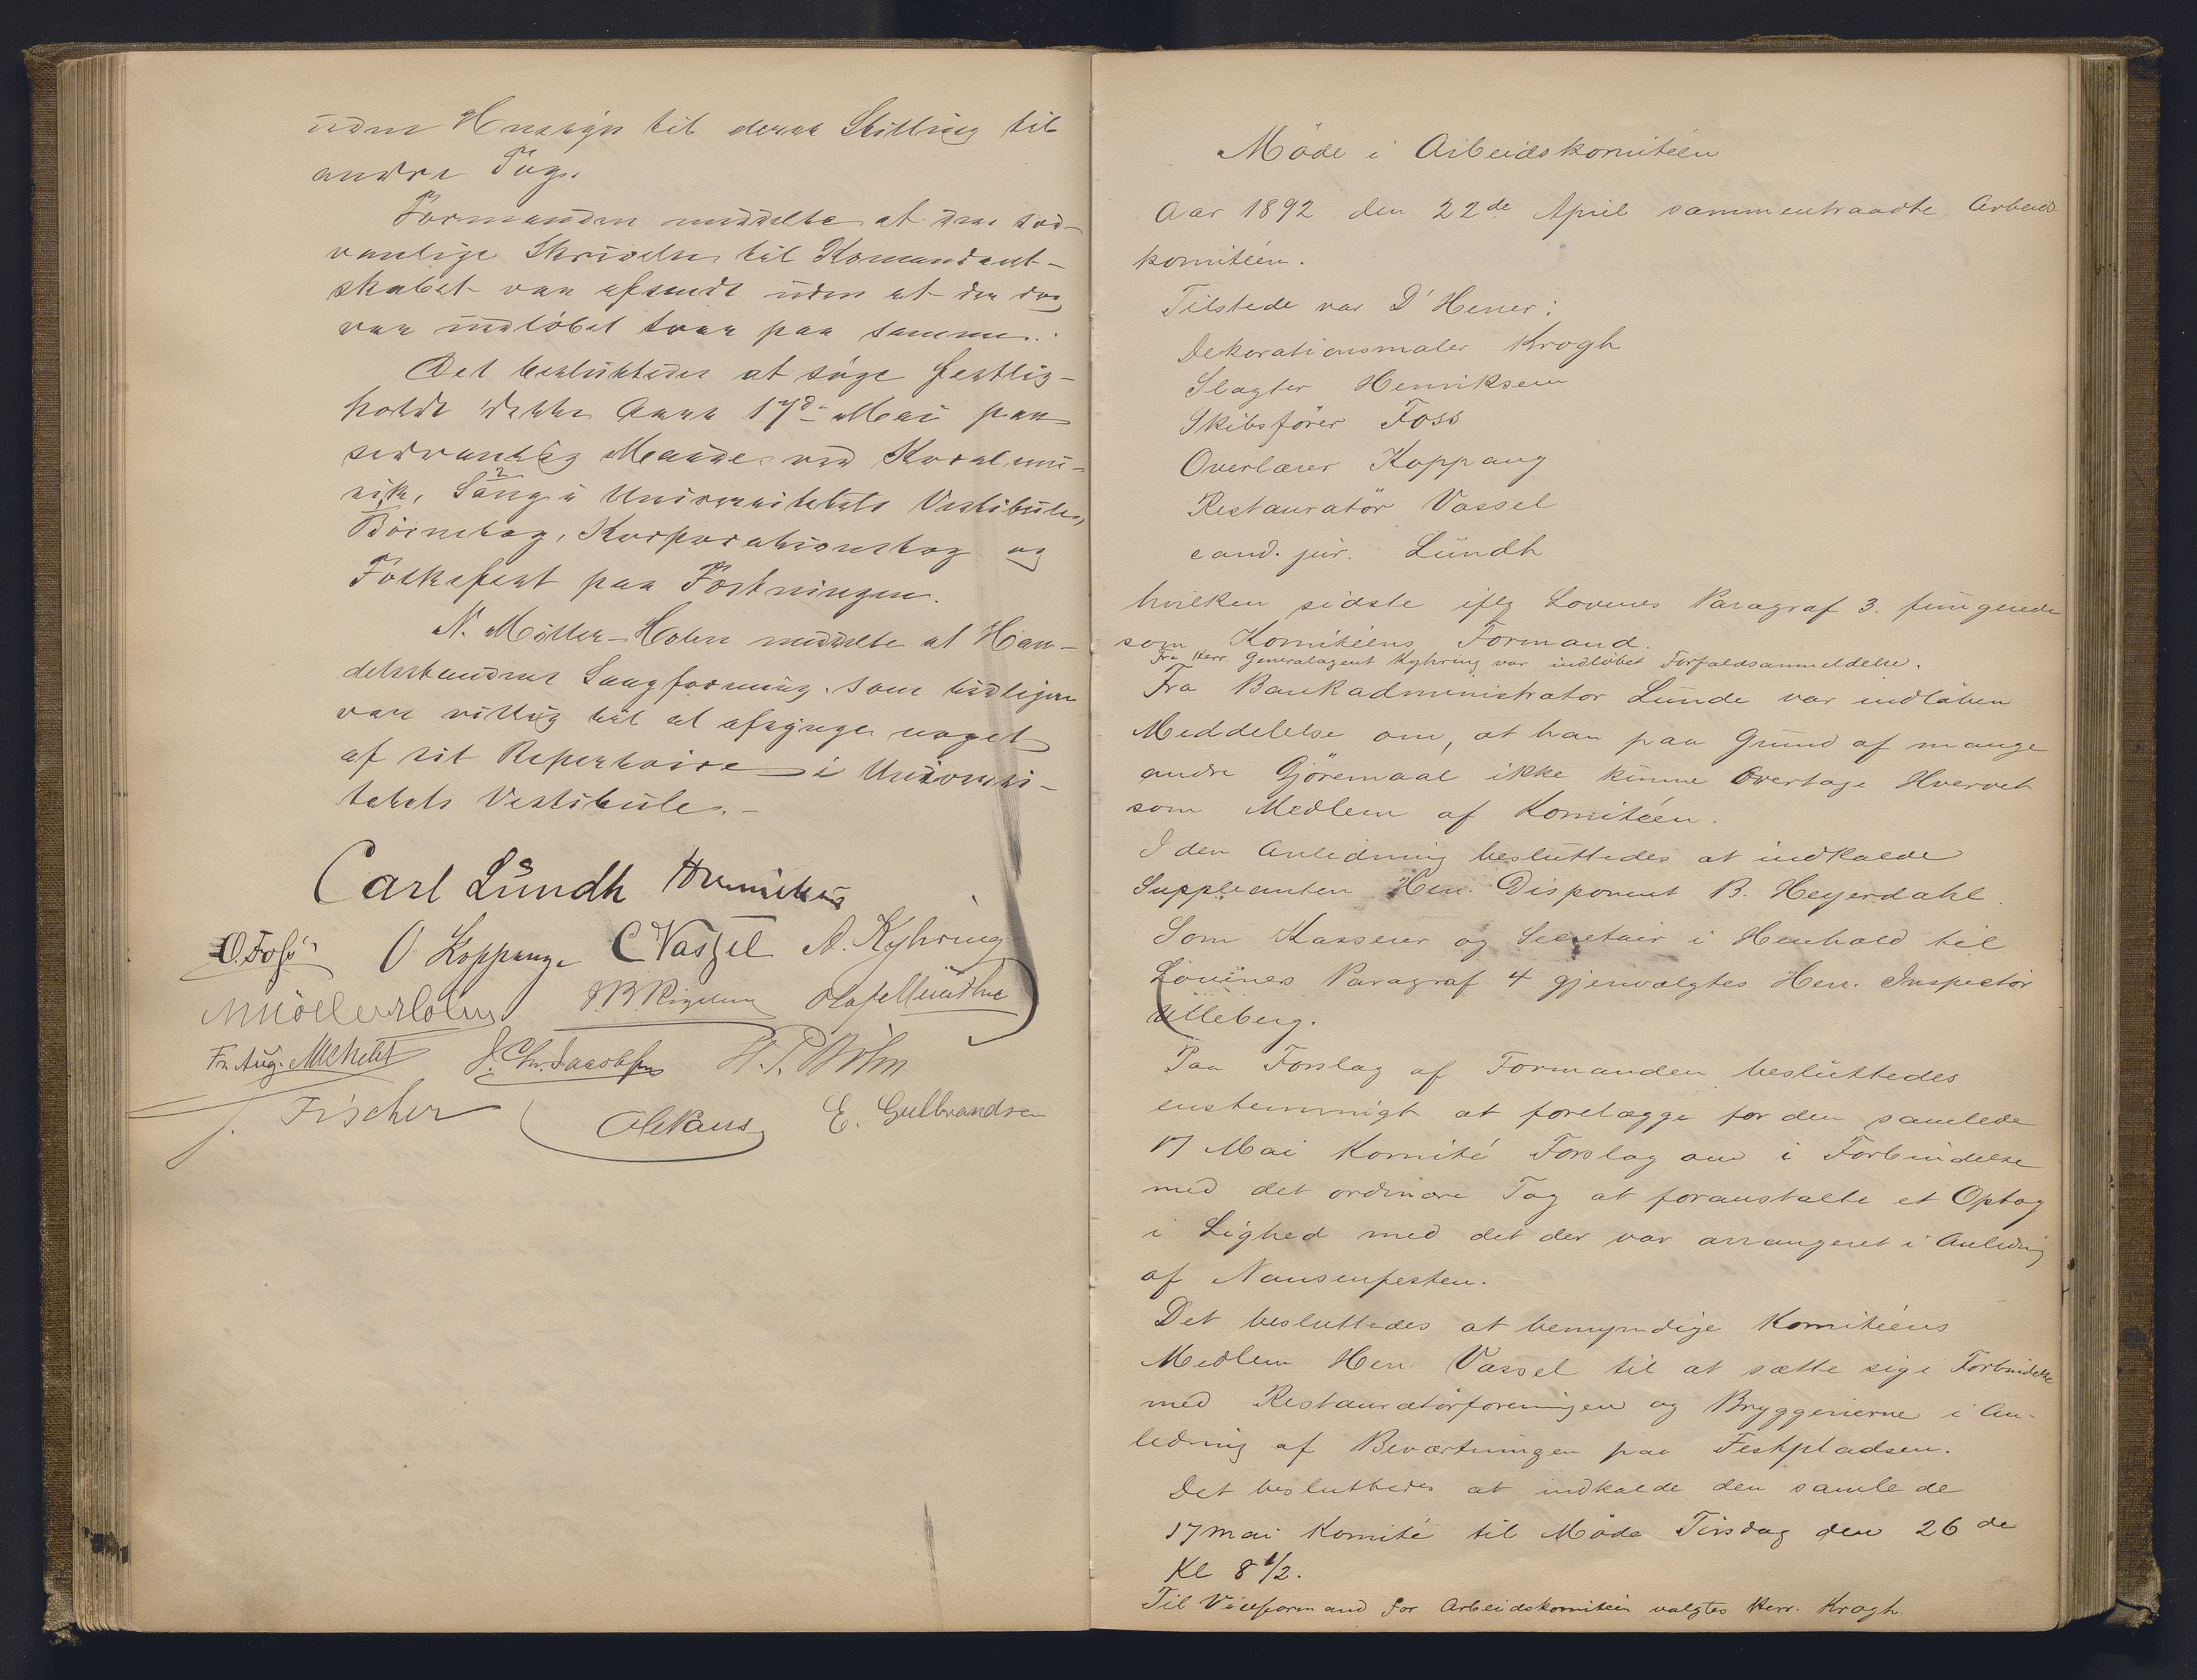 uden Hensyn til deres Stilling til
andre Tog.
Formanden meddelte at den sæd-
vanlige Skrivelse til Komandant-
skabet var afsendt uden at der dog
var indløbet Svar paa samme.
Det besluttedes at søge festlig-
holdt dette Aars 17de Mai paa
sedvanlig Maade ved Koralmu-
sik, Sang i Universitetets Vestibule,
Börnetog, Korporationstog og
Folkefest paa Fæstningen.
N. Möller-Holm meddelte at Han-
delsstandens Sangforening som tidligere
var villig til at afsynge noget
af sit Repertoire i Universi-
tetets Vestibule.-
Carl Lundh Henriksen
O. Foss O Koppang C Vaszel A. Kyhring
N Möller Holm
Fr. Aug. J. Chr. Jacobsen
J. Fischer E. Gulbrandsen
Möde i Arbeidskomitéen
Aar 1892 den 22de April sammentraadte Arbeids-
komitéen.
Tilstede var D'Herrer:
Dekorationsmaler Krogh
Slagter Henriksen
Skibsförer Foss
Overlærer Koppang
Restauratör Vassel
cand. jur. Lundh
hvilken sidste iflg Lovenes Paragraf 3. fungerede
som Komitéens Formand.
Fra Herr. Generalagent Kyhring var indløbet Forfaldsanmeldelse.
Fra Bankadministrator Lunde var indløben
Meddelelse om, at han paa Grund af mange
andre Gjöremaal ikke kunne overtage Hvervet
som Medlem af Komitéen.
I den Anledning besluttedes at indkalde
Suppleanten Herr. Disponent B. Heyerdahl.
Som Kasserer og Secretair i Henhold til
Lovenes Paragraf 4 gjenvalgtes Herr. Inspectör
Ulleberg.
Paa Forslag af Formanden besluttedes
enstemmigt at forelægge for den samlede
17 Mai Komité Forslag om i Forbindelse
med det ordinære Tog at foranstalte et Optog
i Lighed med det der var arrangeret i Anledning
af Nansenfesten.
Det besluttedes at bemyndige Komitéens
Medlem Herr Vassel til at sætte sig i Forbindelse
med Restauratörforeningen og Bryggerierne i An-
ledning af Beværtningen paa Festpladsen.
Det besluttedes at indkalde den samlede
17 mai Komité til Möde Tirsdag den 26de
Kl 8 1/2.
Til Viceformand for Arbeidskomitéen valgtes Herr. Krogh.